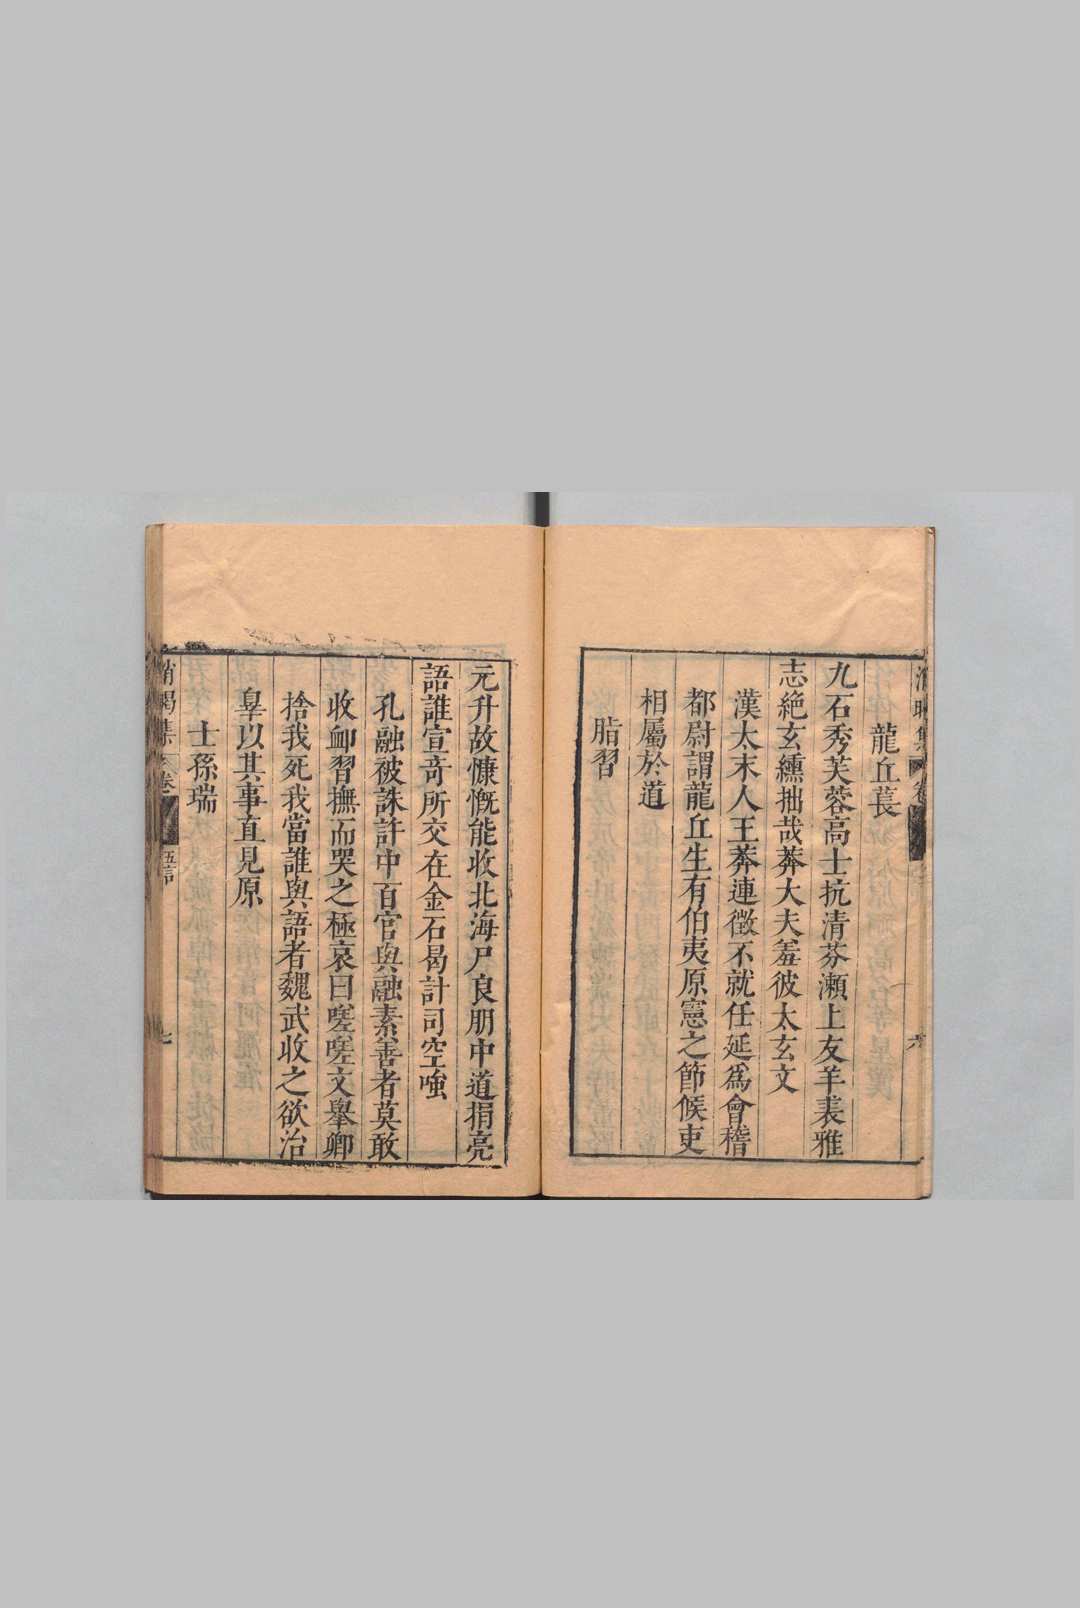 龍丘萇
九石秀芙蓉高士抗清芬瀨上友羊裘雅
志絶玄纁拙哉莽大夫羞彼太玄文
漢太末人王莽連徵不就任延爲會稽
都尉謂龍丘生有伯夷原憲之節候吏
相屬於道
脂習
元升故慷慨能收北海尸良朋中道捐亮
語誰宣奇所交在金石曷計司空嗤
孔融被誅許中百官與融素善者莫敢
收卹習撫而哭之極哀曰嗟嗟文舉卿
捨我死我當誰與語者魏武收之欲治
辠以其事直見原
士孫瑞
五言
七